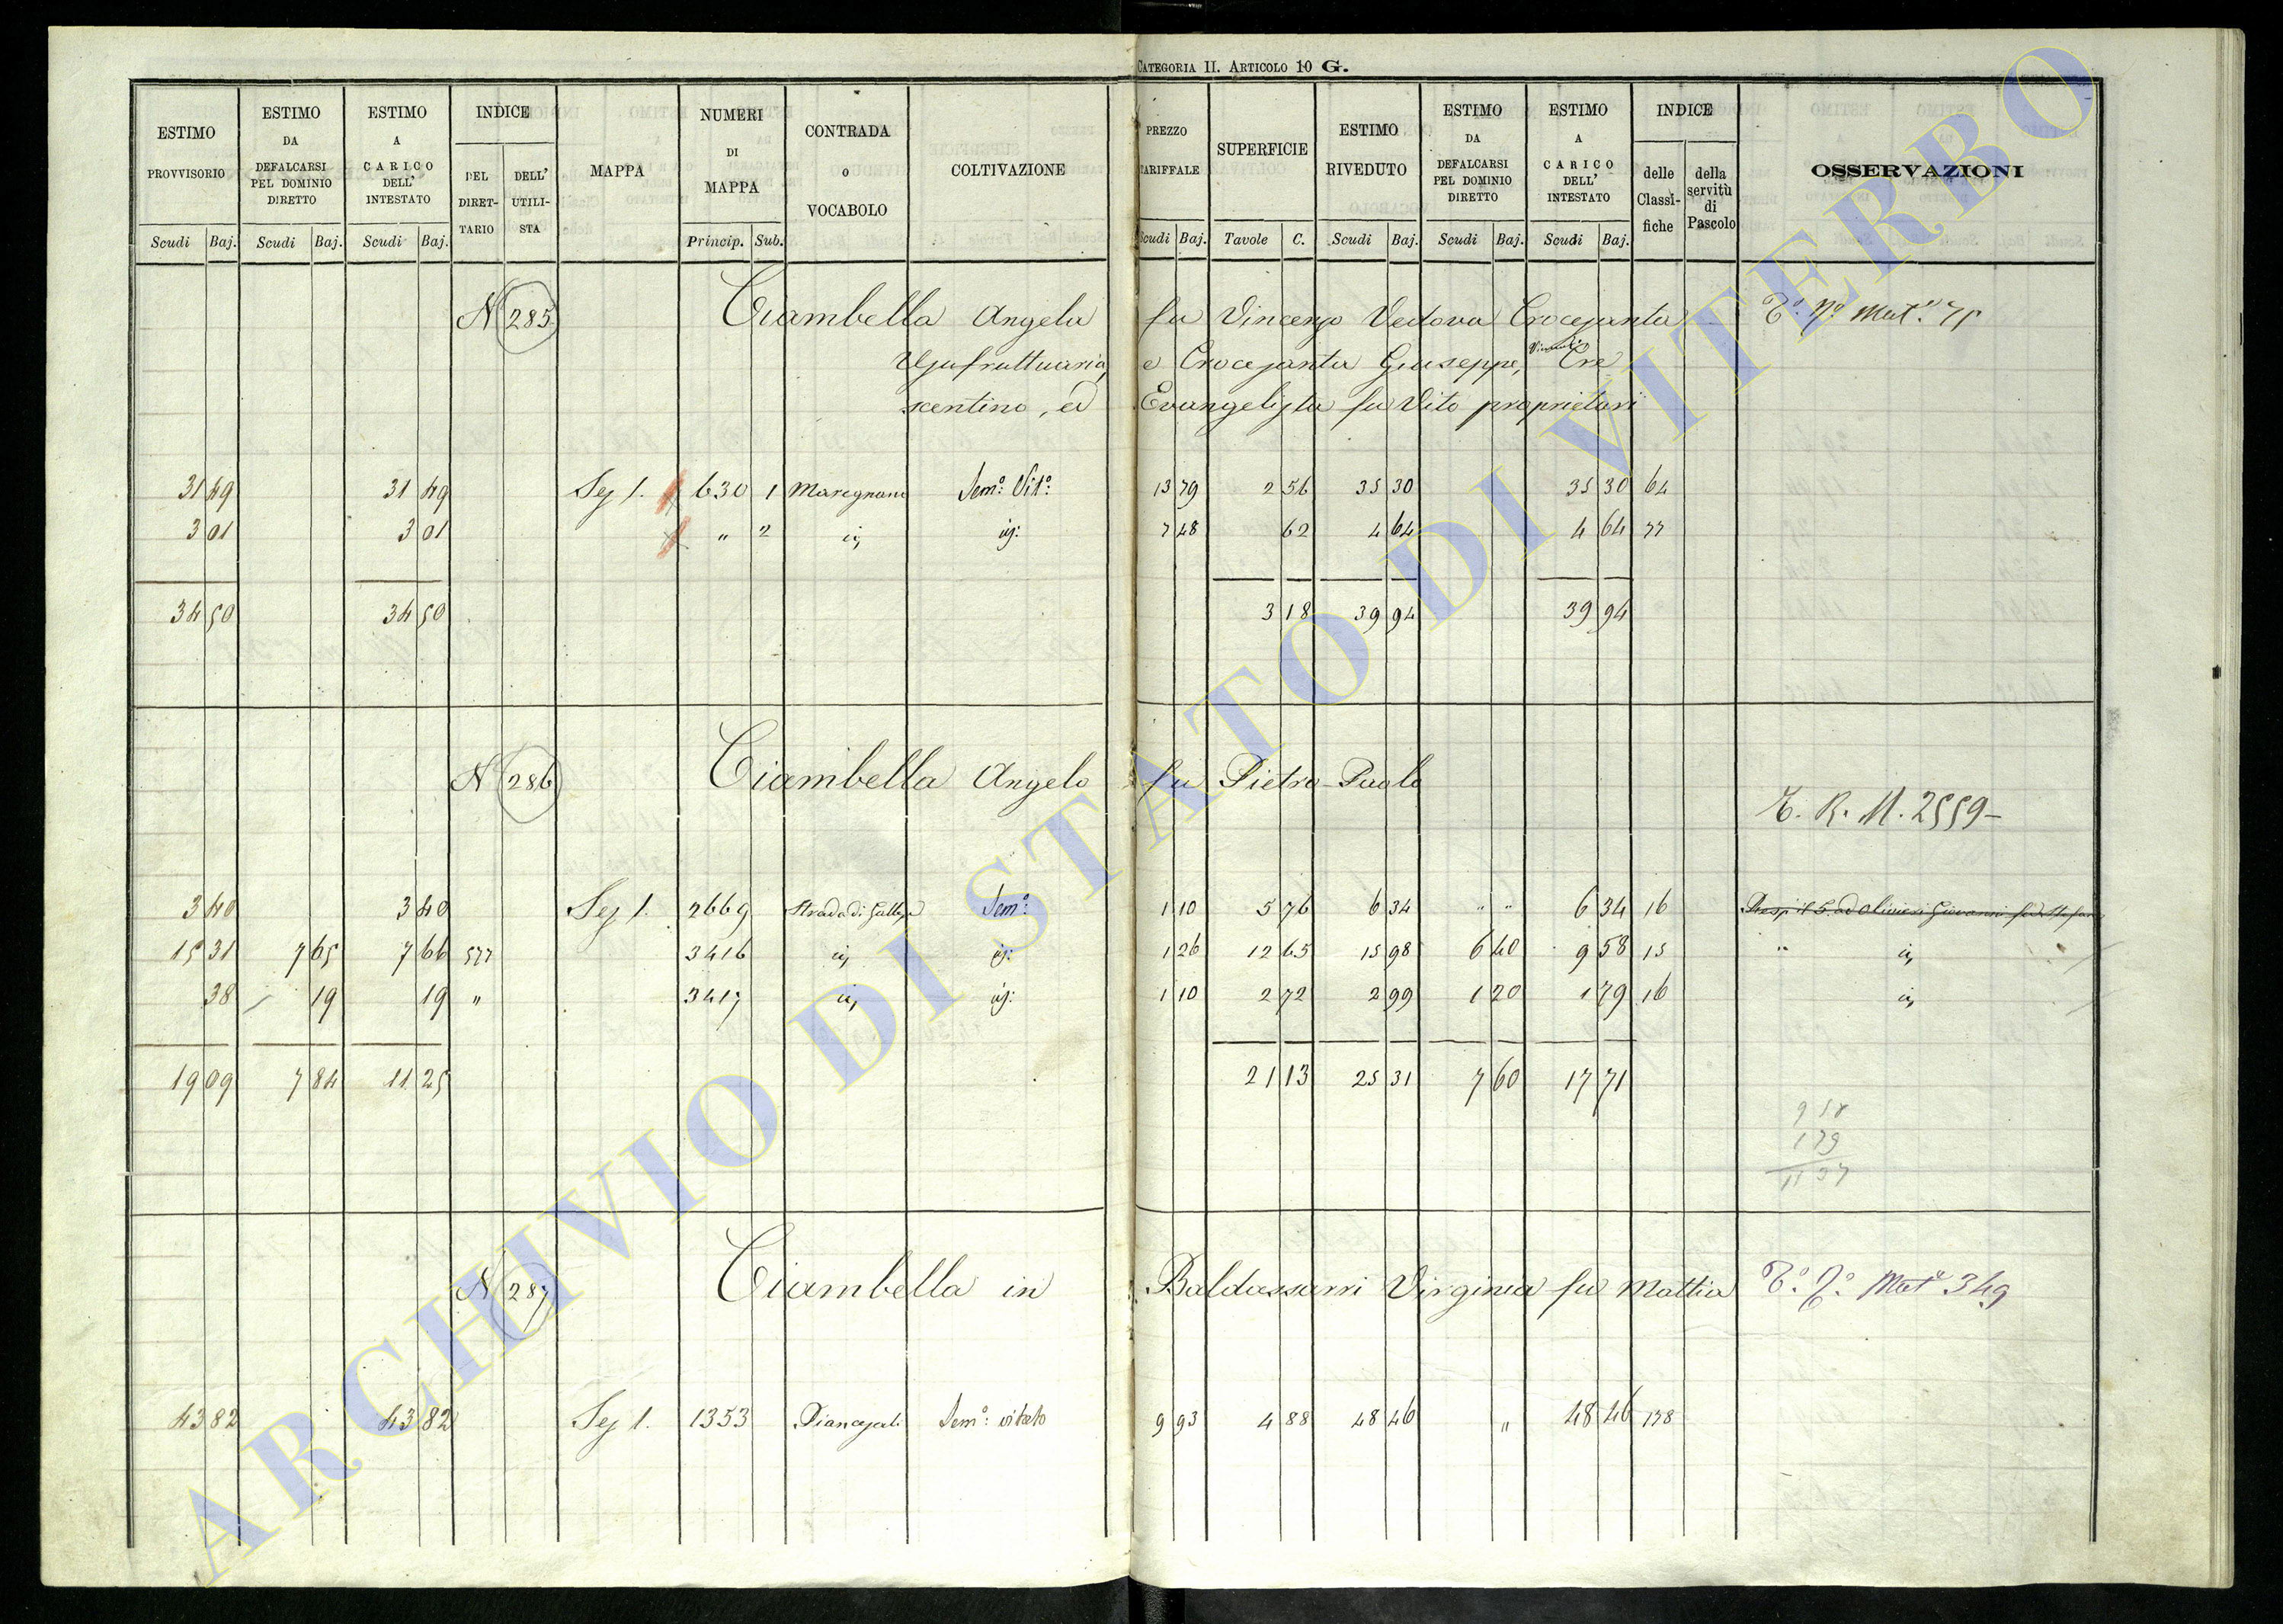 CATEGORIA II. ARTICOLO 10 G.
ESTIMO PROVVISORIO Scudi Baj.
ESTIMO DA DEFALCARSI PEL DOMINIO DIRETTO Scudi Baj.
ESTIMO A CARICO DELL' INTESTATO Scudi Baj.
INDICE DEL DIRETTARIO DELL' UTILISTA
MAPPA
NUMERI DI MAPPA Princip. Sub.
CONTRADA O VOCABOLO
COLTIVAZIONE
PREZZO TARIFFALE Scudi Baj.
SUPERFICIE Tavole C.
ESTIMO RIVEDUTO Scudi Baj.
ESTIMO DA DEFALCARSI PEL DOMINIO DIRETTO Scudi Baj.
ESTIMO A CARICO DELL' INTESTATO Scudi Baj.
INDICE delle Classifiche della servitù di Pascolo
OSSERVAZIONI
N 285 Ciambella Angela fu Vincenzo Vedova Crocejanta
Usufruttuaria, e Crocejanta Giuseppe, Cre
scentino, ed Evangelista fu Vito proprietari
31 49 31 49 Sez 1. 630 1 Marignano Sem.° Vit.° 13 79 2 56 35 30 35 30 64
3 01 3 01 " 2 id. id. 7 48 62 4 64 4 64 77
34 50 34 50 3 18 39 94 39 94
N 286 Ciambella Angelo fu Pietro Paolo
T. R. M. 2559-
3 40 3 40 Sez 1. 2669 Strada di Gallese Sem.° 1 10 5 76 6 34 " " 6 34 16
15 31 7 65 7 66 577 3416 id. id. 1 26 12 65 15 98 6 40 9 58 15 " id.
38 19 19 " 3417 id. id. 1 10 2 72 2 99 1 20 1 79 16 id.
19 09 7 84 11 25 21 13 25 31 7 60 17 71
9 58
1 79
11 37
N 287 Ciambella in Baldassarri Virginia fu Mattia Mat. 349
43 82 43 82 Sez 1. 1353 Piancejali Sem.° vitato 9 93 4 88 48 46 " 48 46 138
ARCHIVIO DI STATO DI VITERBO